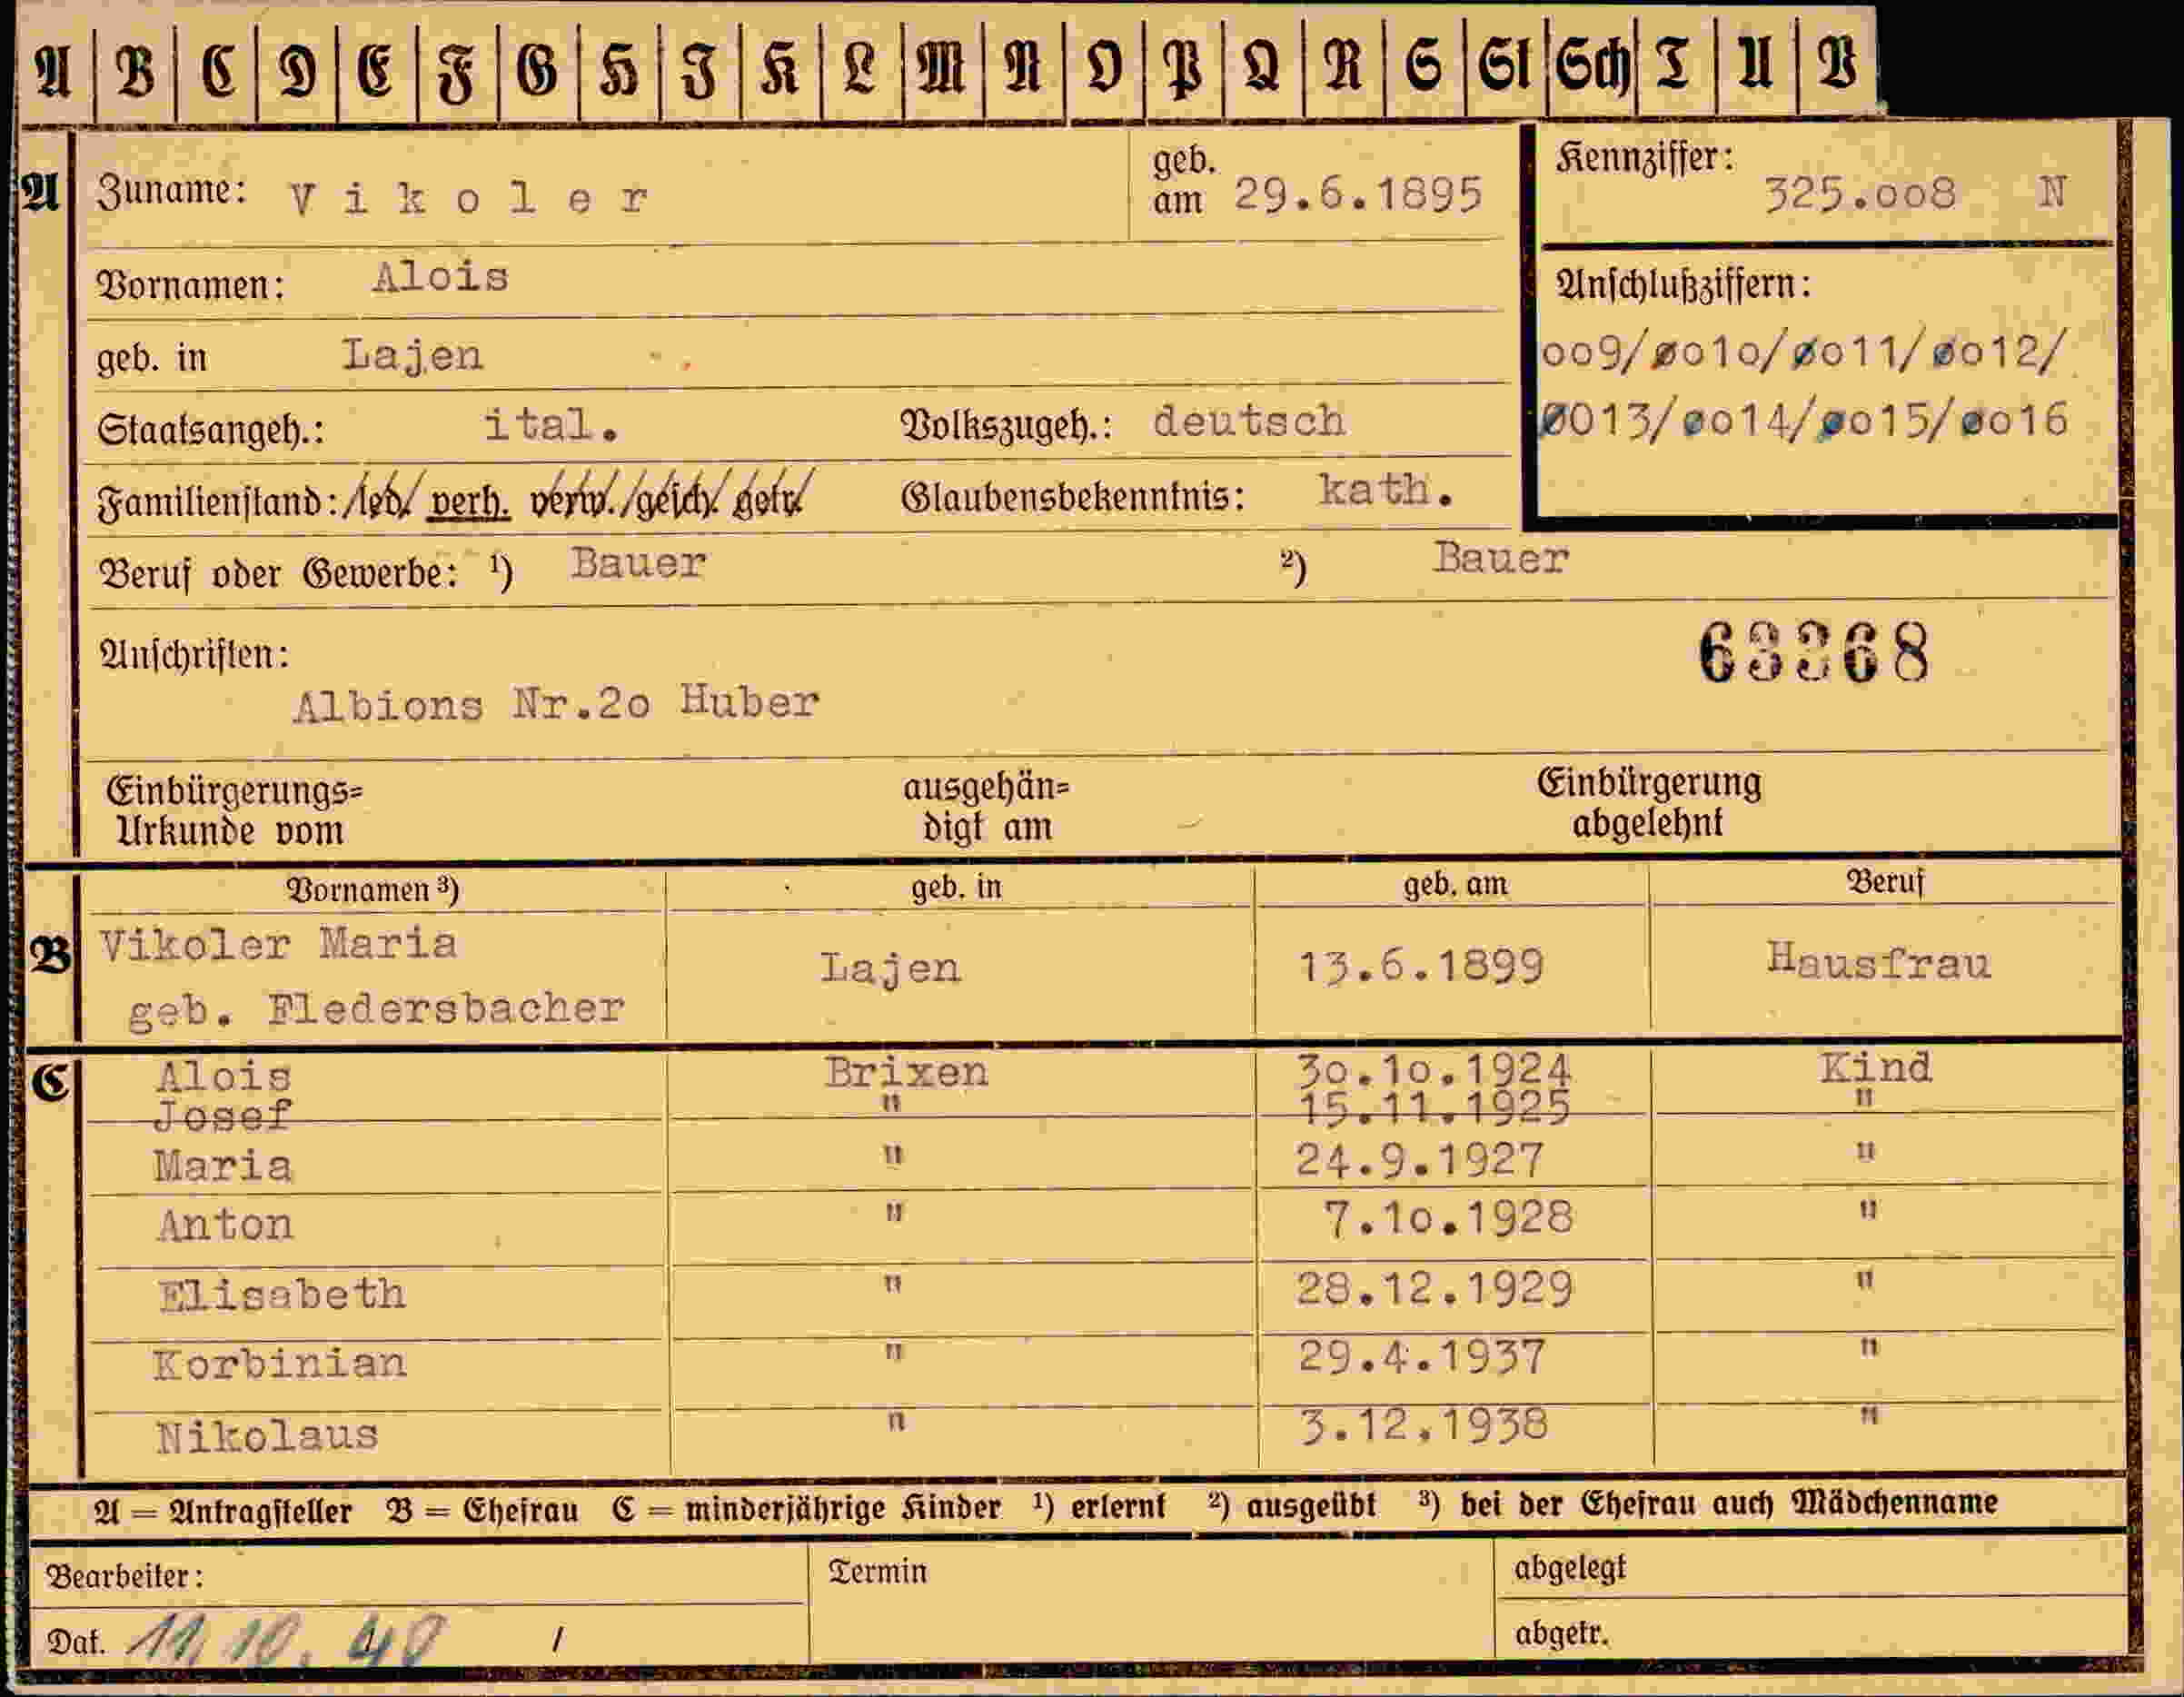 A B C D E F G H I K L M N O P Q R S St Sch T U V
A Zuname: Vikoler geb. am 29.6.1895 Kennziffer: 325.oo8 N
Vornamen: Alois
Anschlußziffern:
geb. in Lajen
oo9/øo1o/øo11/øo12/
Staatsangeh.: ital. Volkszugeh.: deutsch
Ø013/øo14/øo15/øo16
Familienstand: led. verh. verw. gesch. getr. Glaubensbekenntnis: kath.
Beruf oder Gewerbe: ¹) Bauer ²) Bauer
63368
Anschriften:
Albions Nr.2o Huber
Einbürgerungs=
Urkunde vom
ausgehän=
digt am
Einbürgerung
abgelehnt
Vornamen ³) geb. in geb. am Beruf
B Vikoler Maria
geb. Fledersbacher
Lajen 13.6.1899 Hausfrau
C Alois Brixen 3o.1o.1924 Kind
Josef " 15.11.1925 "
Maria " 24.9.1927 "
Anton " 7.1o.1928 "
Elisabeth " 28.12.1929 "
Korbinian " 29.4.1937 "
Nikolaus " 3.12.1938 "
A = Antragsteller B = Ehefrau C = minderjährige Kinder ¹) erlernt ²) ausgeübt ³) bei der Ehefrau auch Mädchenname
Bearbeiter: Termin abgelegt
Dat. 11.10.40 / abgetr.